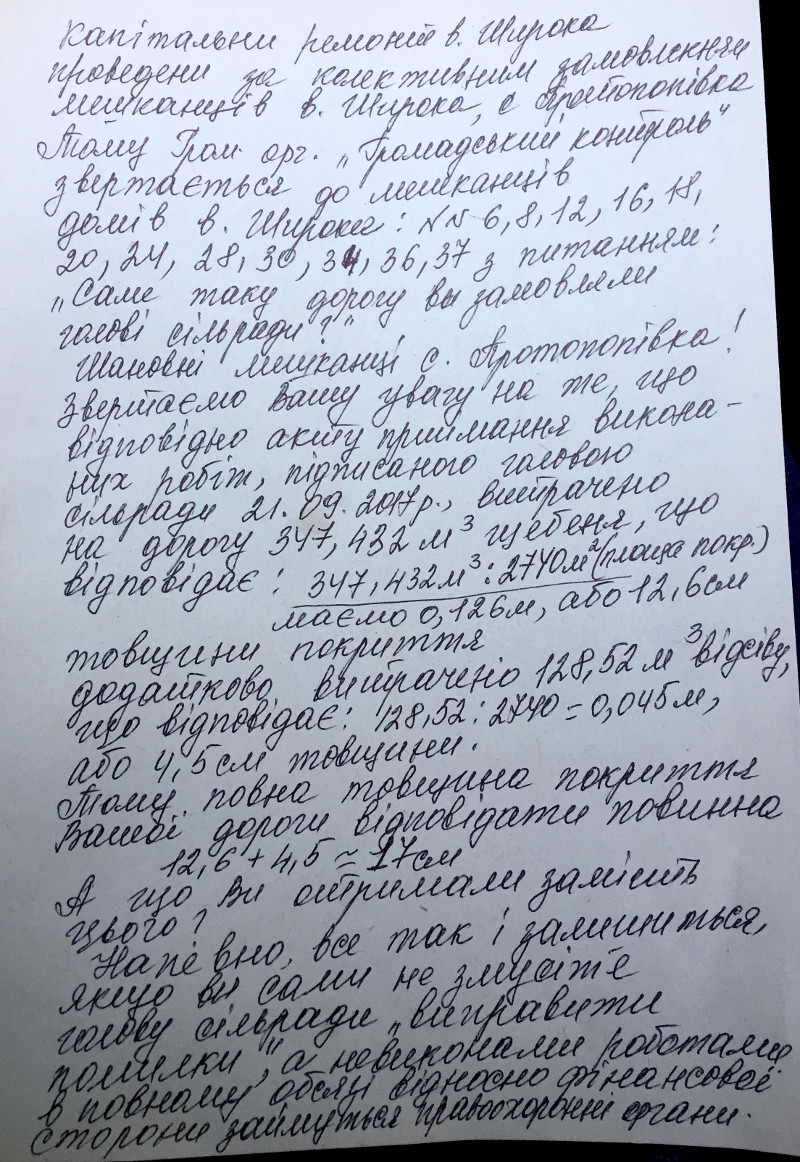 Капітальни ремонти в. Широка
проведени за колективним замовленням
мешканців в. Широка, с Протопопівка
Тому Гром. орг. „Громадський контроль"
звертається до мешканців
домів в. Широка: №№ 6, 8, 12, 16, 18,
20, 24, 28, 30, 34, 36, 37 з питанням:
„Саме таку дорогу ви замовляли
голові сільради?"
Шановні мешканці с. Протопопівка!
Звертаємо Вашу увагу на те, що
відповідно акту приймання викона-
них робіт, підписаного головою
сільради 21.09.2017р., витрачено
на дорогу 347,432 м³ щебеня, що
відповідає: 347,432м³:2740м²(площа покр.)
маємо 0,126м, або 12,6см
товщини покриття
додатково витрачено 128,52 м³ відсіву,
що відповідає: 128,52:2740=0,045м,
або 4,5см товщини.
Тому повна товщина покриття
Вашої дороги відповідати повинна
12,6+4,5≃17см
А що Ви отримали замість
цього?
Напевно, все так і залишиться,
якщо ви сами не змусіте
голову сільради „виправити
помилки", а невиконами роботами
в повному обсязі відносно фінансової
сторони займуться правоохоронні органи.